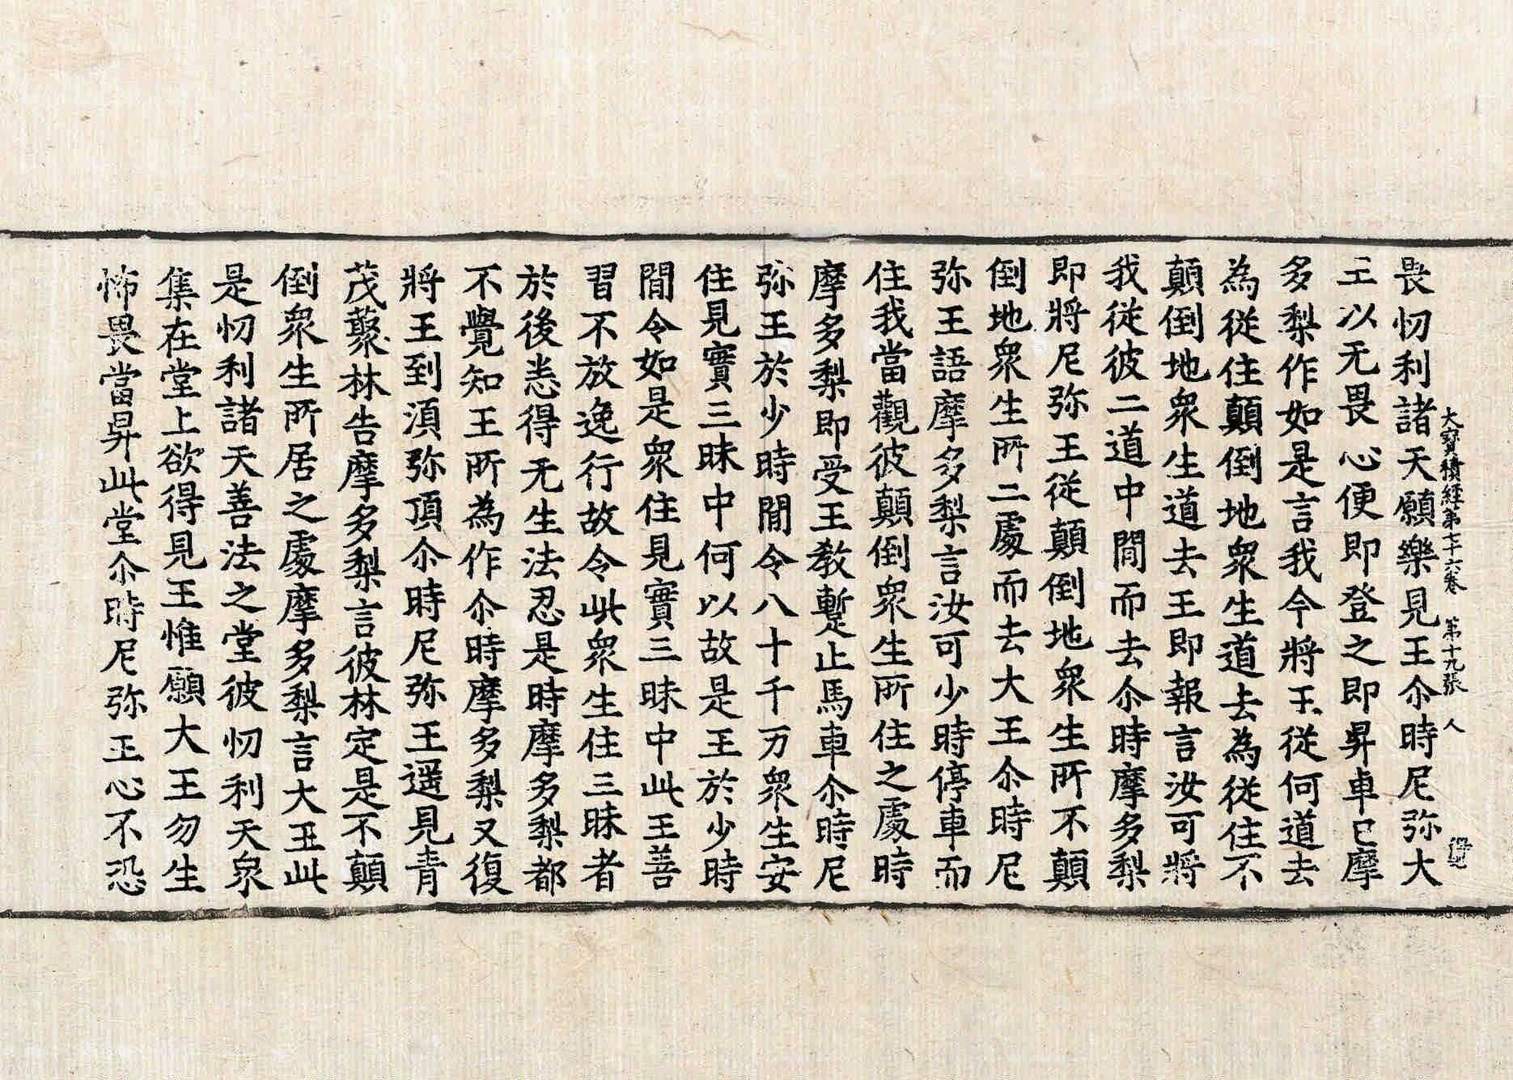 大寶積經第七十六卷　第十九張　人
畏忉利諸天願樂見王尒時尼弥大
王以无畏心便即登之即昇車已摩
多梨作如是言我今將王從何道去
為從住顛倒地衆生道去為從住不
顛倒地衆生道去王即報言汝可將
我從彼二道中間而去尒時摩多梨
即將尼弥王從顛倒地衆生所不顛
倒地衆生所二處而去大王尒時尼
弥王語摩多梨言汝可少時停車而
住我當觀彼顛倒衆生所住之處時
摩多梨即受王教蹔止馬車尒時尼
弥王於少時間令八十千万衆生安
住見實三昧中何以故是王於少時
間令如是衆住見實三昧中此王善
習不放逸行故令此衆生住三昧者
於後悉得无生法忍是時摩多梨都
不覺知王所為作尒時摩多梨又復
將王到湏弥頂尒時尼弥王遥見青
茂藂林告摩多梨言彼林定是不顛
倒衆生所居之處摩多梨言大王此
是忉利諸天善法之堂彼忉利天衆
集在堂上欲得見王惟願大王勿生
怖畏當昇此堂尒時尼弥王心不恐